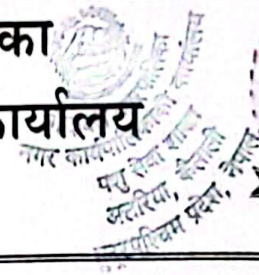 का
र्यालय
नगर कार्यपालिका
पशु सेवा शाखा
अत्तरिया, कैलाली
सुदूरपश्चिम प्रदेश, नेपाल